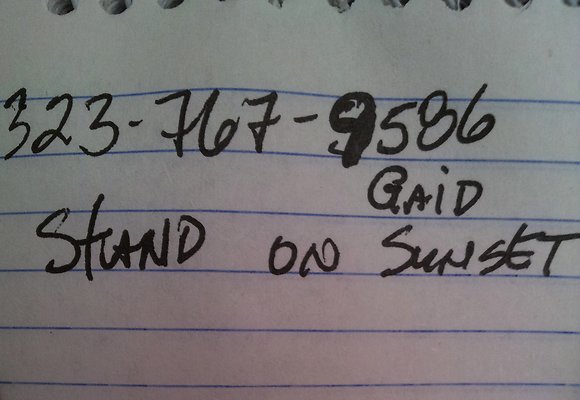 323-767-9586
GAID
STAND ON SUNSET